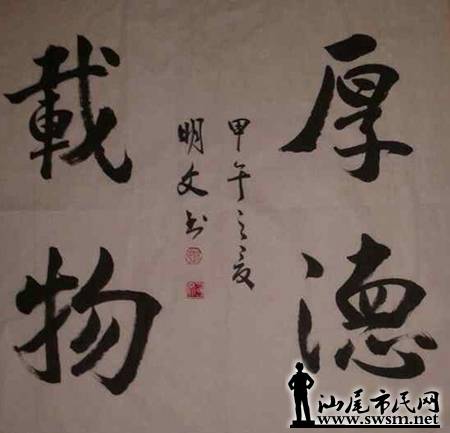 厚德
載物
甲午之夏
明文书
汕尾市民网
www.swsm.net